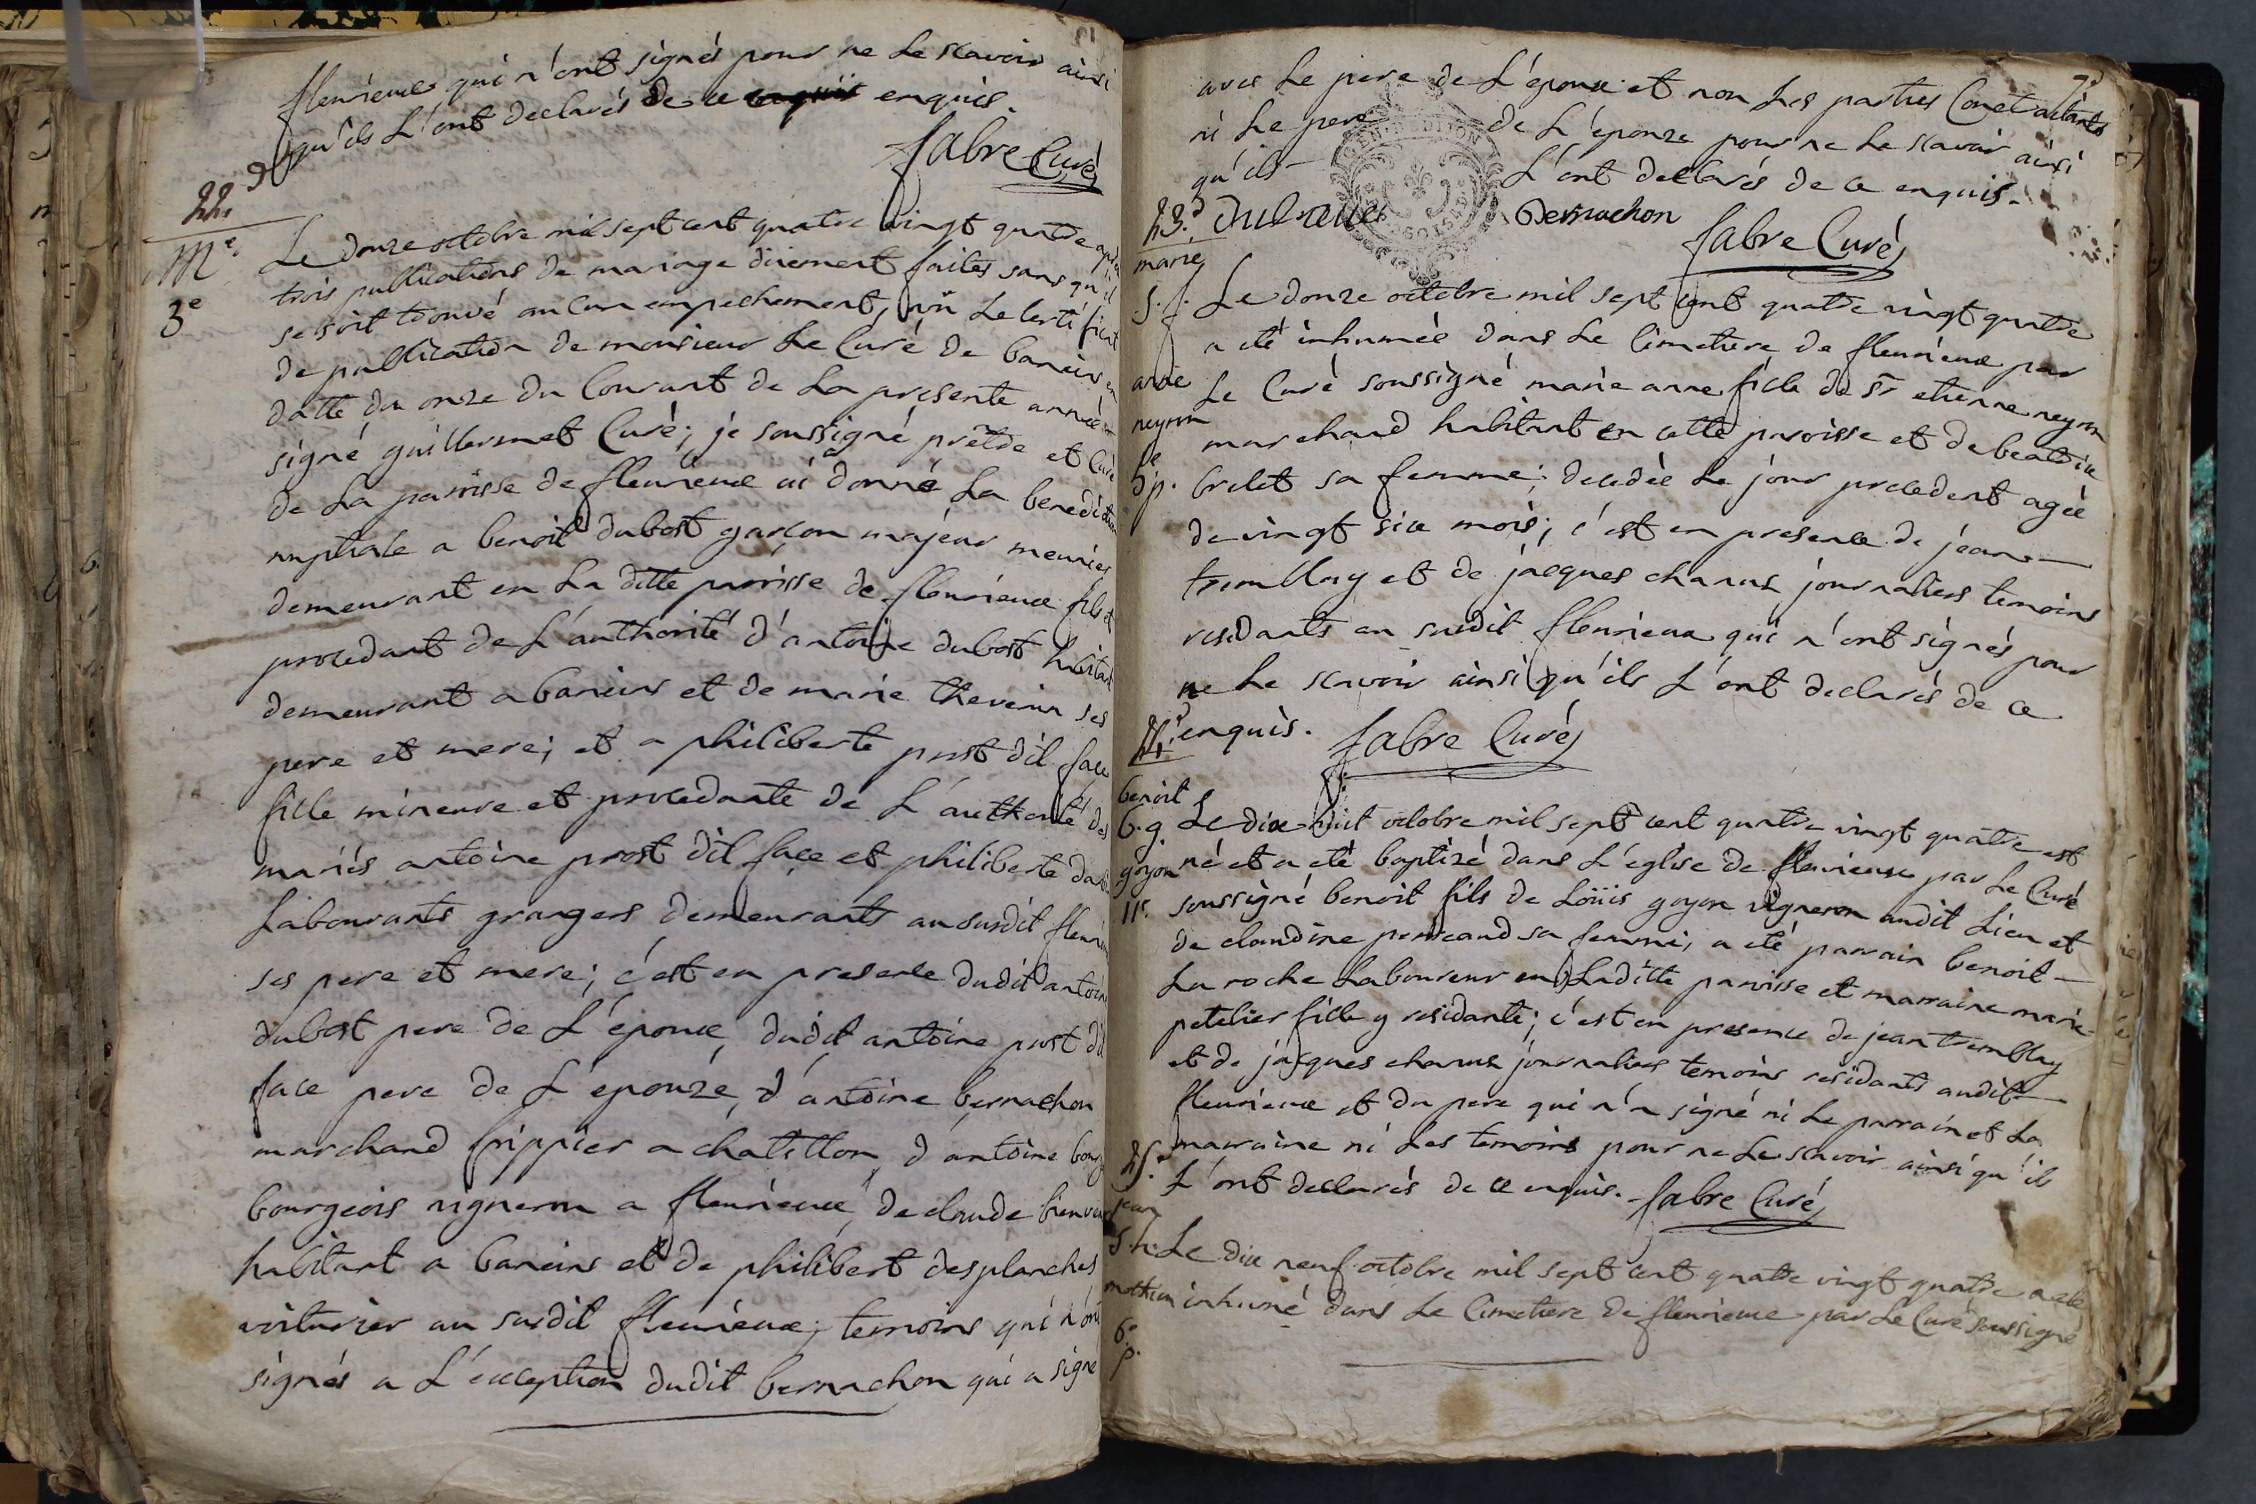 fleurieux qui n'ont signés pour ne le scavoir ainsi
qu'ils L'ont declarés de ce enquis.
fabre Curé
22.
M.e
3e
Le douze octobre mil sept cent quatre vingt quatre après
trois publications de mariage düement faites sans qu'il
se soit trouvé aucun empechement, vû Le Certificat
de publication de monsieur Le Curé de baneins en
datte du onze du Courant de La presente année
signé guillermet Curé; je soussigné prêtre et Curé
de La paroisse de fleurieux ai donné La benediction
nuptiale a benoit dubost garçon majeur meunier
demeurant en La ditte paroisse de fleurieux fils et
procedant de L'authorité d'antoine dubost habitant
demeurant a baneins et de marie thevenin ses
pere et mere; et a philiberte prost dil face
fille mineure et procedante de L'authorité des
mariés antoine prost dil face et philiberte
Labourants grangers demeurants au susdit fleurieux
ses pere et mere; c'est en presence dudit antoine
dubost pere de L'epoux, dudit antoine prost dil
face pere de L'epouze, d'antoine bernachon
marchand frippier a chatillon, d'antoine
bourgeois vigneron a fleurieux, de claude
habitant a baneins et de philibert desplanches
voiturier au susdit fleurieux; temoins qui n'ont
signés a L'exception dudit bernachon qui a signé
avec Le pere de L'epoux et non Les parties Contractants
ni Le pere de L'epouze pour ne Le scavoir ainsi
qu'ils L'ont declarés de ce enquis.
Bernachon
fabre Curé
23.
marie
S. f.
anne
neyron
de
5 p.
Le douze octobre mil sept cent quatre vingt quatre
a eté inhumée dans Le Cimetiere de fleurieux par
Le Curé soussigné marie anne fille de Sr etienne neyron
marchand habitant en cette paroisse et de beatrix
brelet sa femme; decedée Le jour precedent agée
de vingt six mois; c'est en presence de jean
tremblay et de jacques charux journaliers temoins
residants au susdit fleurieux qui n'ont signés pour
ne Le scavoir ainsi qu'ils L'ont declarés de ce
enquis.
fabre Curé
24.
benoit
b. g.
goyon
11e.
Le dix huit octobre mil sept cent quatre vingt quatre est
né et a eté baptizé dans L'eglise de fleurieux par Le Curé
soussigné benoit fils de Loüis goyon vigneron audit Lieu et
de claudine sa femme; a eté parrain benoit
La roche Laboureur en Laditte paroisse et marraine marie
petelier fille y residante; c'est en presence de jean tremblay
et de jacques charux journaliers temoins residants audit
fleurieux et du pere qui n'a signé ni Le parrain et La
marraine ni Les temoins pour ne Le scavoir ainsi qu'ils
L'ont declarés de ce enquis. fabre Curé
25.
jean
S. h.
6e
p.
Le dix neuf octobre mil sept cent quatre vingt quatre a eté
inhumé dans Le Cimetiere de fleurieux par Le Curé soussigné